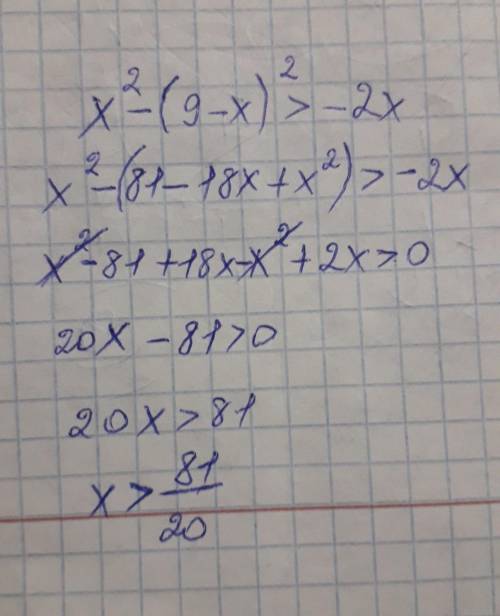 x² - (9 - x)² > -2x
x² - (81 - 18x + x²) > -2x
x² - 81 + 18x - x² + 2x > 0
20x - 81 > 0
20x > 81
x > 81/20